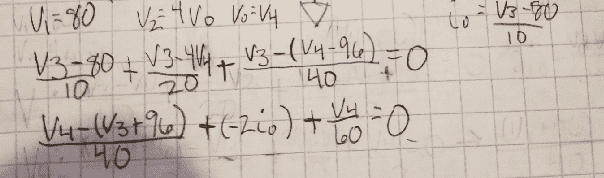 V1=80 V2=4V0 V0=V4 ▽ i0 = V3-80/10
V3-80/10 + V3-4V4/20 + V3-(V4-96)/40 = 0
V4-(V3+96)/40 + (-2i0) + V4/60 = 0